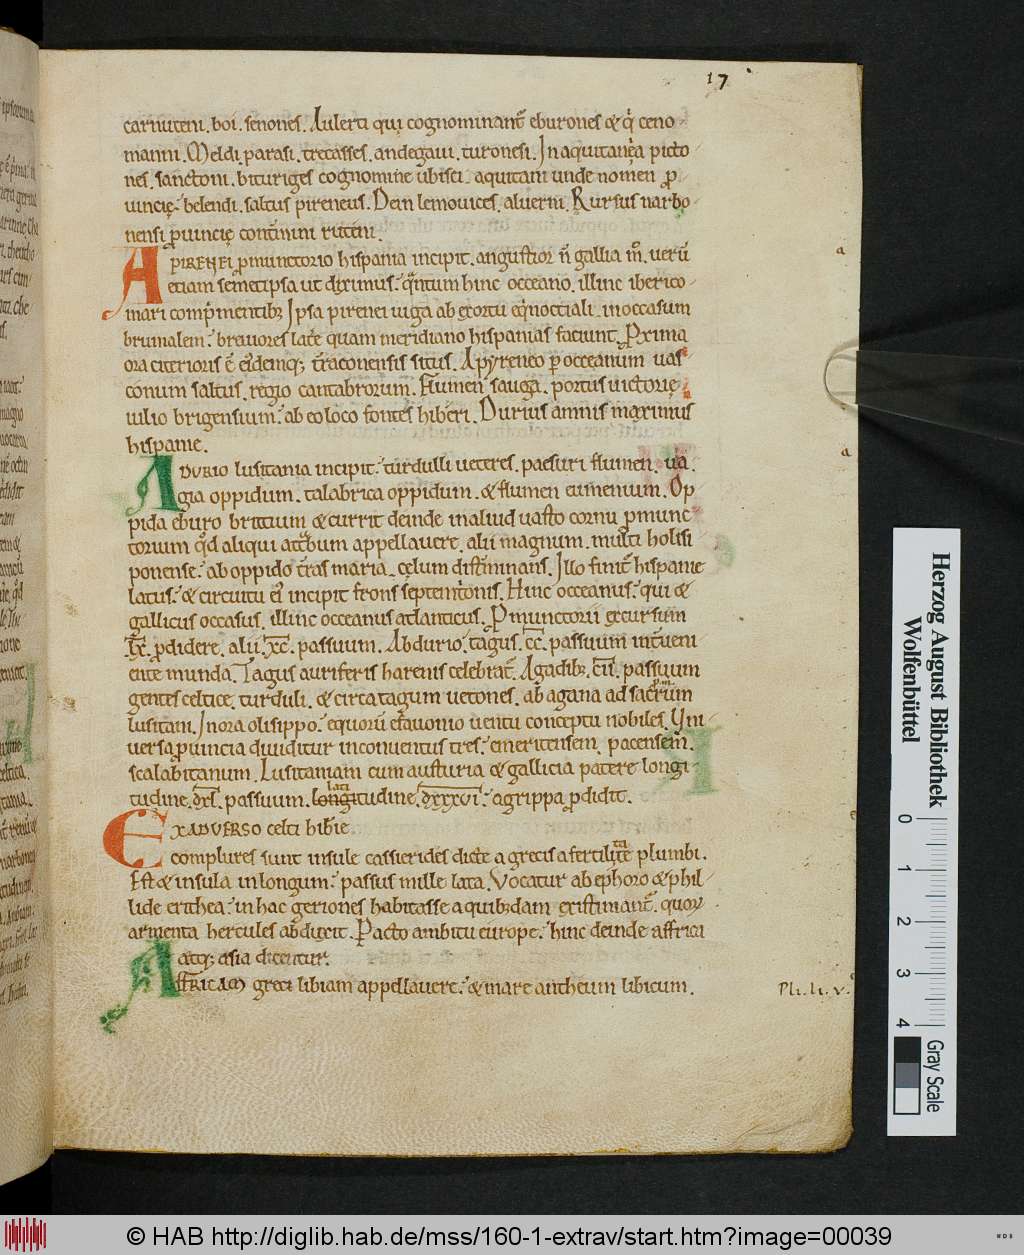 17
carnuteni. boi. senones. Aulerti qui cognominant̄ eburones & q̇ ceno-
manni. Meldi. parasi. trecasses. andegaui. turonesi. In aquitanęa picto
nes. sanctoni. bituriges cognomine ubisci. aquitani unde nomen ꝓ-
uincię. belendi. saltus pireneus. Dein lemouices. aluerni. Rursus narbo
nensi ꝓuincię contīnini ruteni.
A PIRENEI ꝓmunctorio hispania incipit. angustior n̄ gallia m̊. uerū
etiam semetipsa ut diximus. q̄ntum hinc occeano. illinc iberico-
mari comp̄mentibꝫ Ipsa pirenei iuga ab exortu eq̇nocciali. in occasum
brumalem. breuiores latē quam meridiano hispanias faciunt. Pxima
ora citerioris ē eiꝰdemqꝫ t̄raconensis situs. A pyreneo ꝑ occeanum uas
conum saltus. regio cantabrorum. Flumen sauga. portus uictorię
iulio brigensium. ab eo loco fontes hiberi. Durius amnis maximus
hispanie.
A DURIO lusitania incipit. turdulli ueteres. paesuri flumen. ua-
gia oppidum. talabrica oppidum. & flumen eumenium. Op
pida eburo brittium & currit deinde in aliud uasto cornu ꝓmunc
torium qd̄ aliqui artabum appellauere. alii magnum. multi holisi
ponense. ab oppido t̄ras maria. cęlum distīminans. Illo finit̄ hispanie
latus. & circuitu eiꝰ incipit frons septemt̓onis. Hinc occeanus. qui &
gallicus occasus. illinc occeanus atlanticus. Pmunctorii excursum
L̅X̅. ꝓdidere. alii X̅C̅. passuum. Ab durio. tagus. C̅C̅. passuum int̄ueni
ente munda. Tagus auriferis harenis celebrat̄. A gadibꝫ C̅I̅I̅. passuum
gentes celtice. turduli. & circa tagum uetones. ab agana ad sacrum
lusitani. In ora olisippo. equorū e fauonio uentu conceptu nobiles. Vni
uersa ꝓuincia diuiditur in conuentus tres. emeritensem. pacensem.
scalabitanum. Lusitaniam cum austuria & gallicia patere longi-
tudine. d̅x̅l̅. passuum. longitudine. d̅x̅x̅x̅v̅i̅. agrippa ꝓdidit.
EX ADUERSO celti bib̄ie
complures sunt insule cassierides dicte a grecis a fertilitate plumbi.
Est & insula in longum. passus mille lata. Vocatur ab ephoro & phil-
lide erithea. in hac geriones habitasse a quibꝫdam existimant̄. quoꝝ
armenta hercules abduxit. Pacto ambitu europe. hinc deinde affrici
atqꝫ asia dicentur.
AFFRICAM greci libiam appellauere. & mare antheium libicum.
Pli. li. v.
a
a
Herzog August Bibliothek
Wolfenbüttel
0 1 2 3 4
Gray Scale
© HAB http://diglib.hab.de/mss/160-1-extrav/start.htm?image=00039